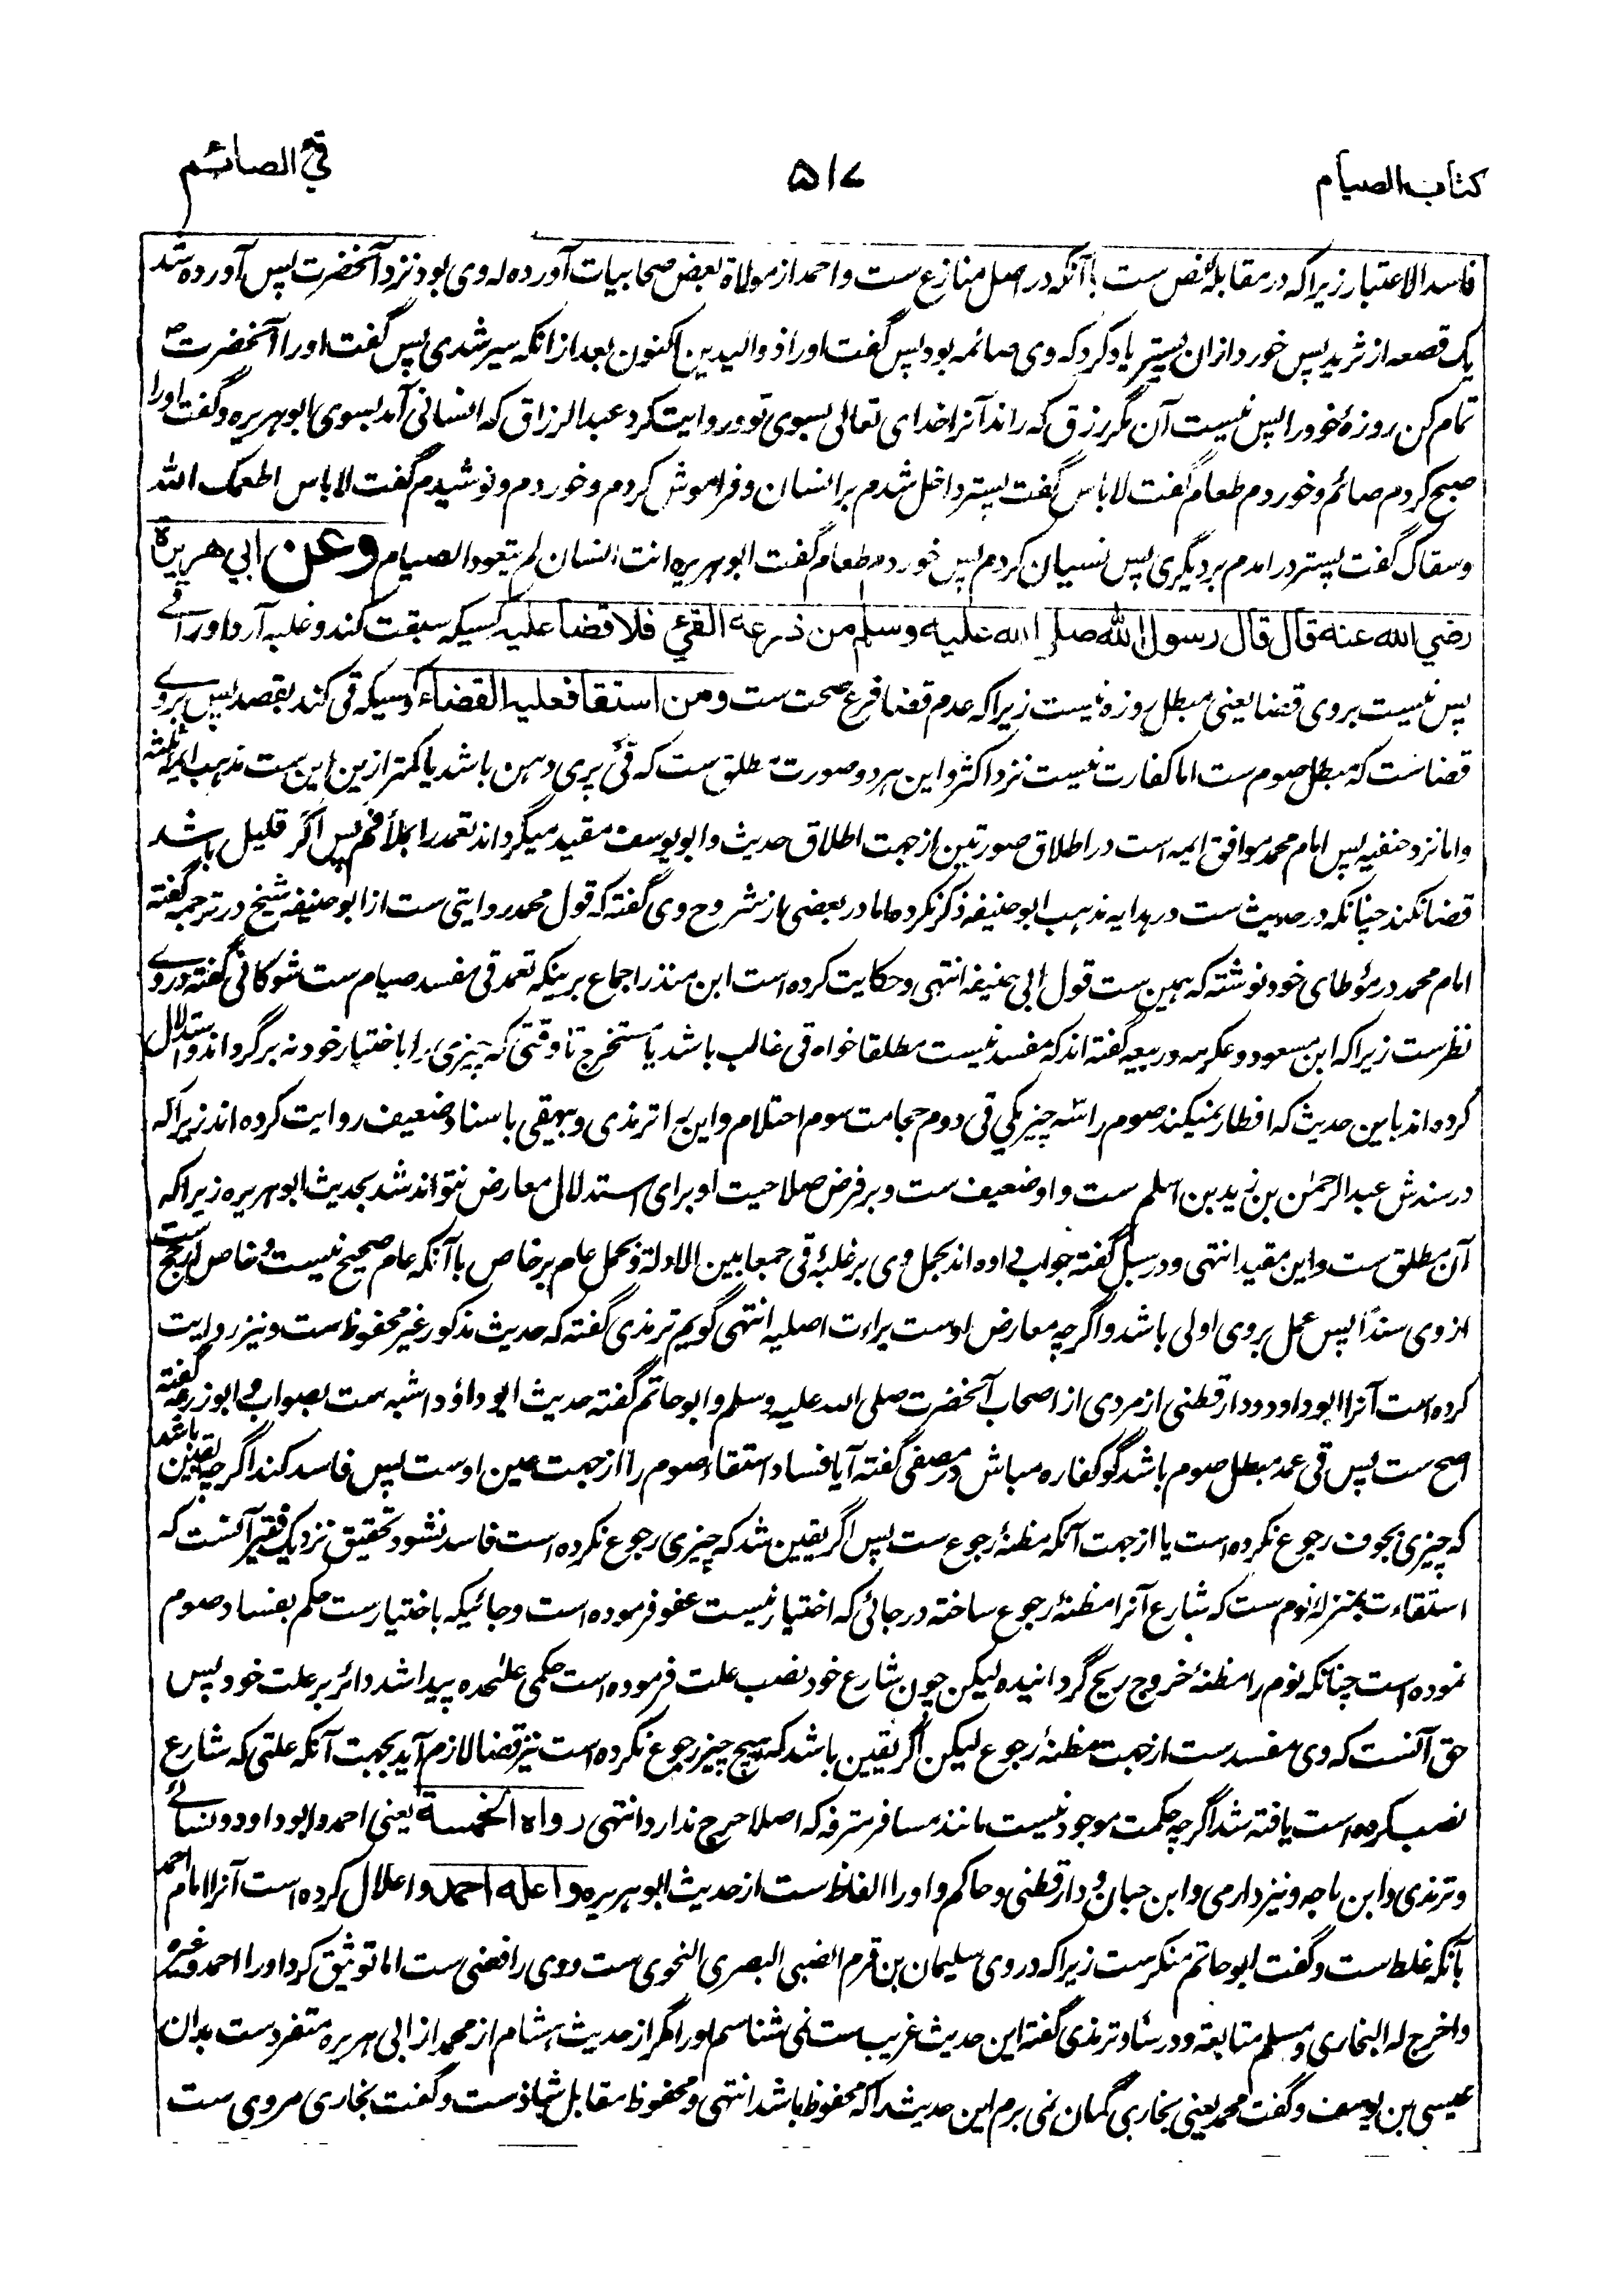 کتاب الصیام
۵۱۷
قئ الصائم
فاسد الاعتبار زیراکه در مقابلهٔ نص ست باآنکه در اصل منازع ست و احمد از مولاة بعض صحابیات آورده که وی بود نزد آنحضرت پس آورده شد
یک قصعه از ثرید پس خورد ازان پستر یاد کرد که وی صائمه بود پس گفت اورا ذوالیدین اکنون بعد ازانکه سیر شدی پس گفت اورا آنحضرت ص
تمام کن روزهٔ خود را پس نیست آن مگر رزق که راند آنرا خدای تعالی بسوی تو و روایت کرد عبدالرزاق که انسانی آمد بسوی ابوهریره و گفت اورا
صبح کردم صائم و خوردم طعام گفت لاباس گفت پستر داخل شدم بر انسان و فراموش کردم و خوردم و نوشیدم گفت لاباس اطعمک الله
و سقاک گفت پستر درامدم بر دیگری پس نسیان کردم پس خوردم طعام گفت ابوهریره انت انسان لم یتعود الصیام وعن ابي هريرة
رضي الله عنه قال قال رسول الله صلى الله عليه وسلم من ذرعه القيء فلا قضاء عليه کسیکه سبقت کند و غلبه آرد اورا قے
پس نیست بروی قضا یعنی مبطل روزه نیست زیراکه عدم قضا فرع صحت ست ومن استقاء فعليه القضاء و کسیکه قی کند بقصد پس بروے
قضاست که مبطل صوم ست اما کفارت نیست نزد اکثر و این هر دو صورت مطلق ست که قئ پری دهن باشد یا کمتر ازین این ست مذهب ایمهٔ ثلثه
و اما نزد حنفیه پس امام محمد موافق ایمه است در اطلاق صورتین از جهت اطلاق حدیث و ابو یوسف مقید میگرداند تعمد را بملأ فم پس اگر قلیل باشد
قضا نکند چنانکه در حدیث ست در هدایه مذهب ابوحنیفه ذکر نکرده اما در بعضی از شروح وی گفته که قول محمد روایتی ست از ابوحنیفه شیخ در ترجمه گفته
امام محمد در مؤطای خود نوشته که همین ست قول ابی حنیفه انتهی و حکایت کرده است ابن منذر اجماع برینکه تعمد قی مفسد صیام ست شوکانی گفته دروے
نظرست زیراکه ابن مسعود و عکرمه و ربیعه گفته اند که مفسد نیست مطلقا خواه قی غالب باشد یا مستخرج تا وقتی که چیزی را باختیار خود نه برگرداند و استدلال
کرده اند باین حدیث که افطار نمیکند صوم را سه چیز یکی قی دوم حجامت سوم احتلام و این را ترمذی و بیهقی باسناد ضعیف روایت کرده اند زیراکه
در سندش عبدالرحمن بن زید بن اسلم ست و او ضعیف ست و بر فرض صلاحیت او برای استدلال معارض نتواند شد بحدیث ابوهریره زیراکه
آن مطلق ست و این مقید انتهی و در سبل گفته جواب داده اند بحمل وی بر غلبهٔ قی جمعا بین الادلة و بحمل عام بر خاص باآنکه عام صحیح نیست و خاص ارجح ست
از وی سندا پس عمل بروی اولی باشد و اگرچه معارض اوست براءت اصلیه انتهی گویم ترمذی گفته که حدیث مذکور غیر محفوظ ست و نیز روایت
کرده است آنرا ابوداود و دارقطنی از مردی از اصحاب آنحضرت صلی الله علیه وسلم و ابوحاتم گفته حدیث ابوداؤد اشبه ست بصواب و ابوزرعه گفته
اصح ست پس قی عمد مبطل صوم باشد گو کفاره مباش و در مصفی گفته آیا فساد استقاء صوم را از جهت عین اوست پس فاسد کند اگرچه یقین باشد
که چیزی بجوف رجوع نکرده است یا از جهت آنکه مظنهٔ رجوع ست پس اگر یقین شد که چیزی رجوع نکرده است فاسد نشود تحقیق نزدیک فقیر آنست که
استقاءت بمنزلهٔ نوم ست که شارع آنرا مظنهٔ رجوع ساخته در جائی که اختیار نیست عفو فرموده است و جائیکه باختیارست حکم بفساد صوم
نموده است چنانکه نوم را مظنهٔ خروج ریح گردانیده لیکن چون شارع خود نصب علت فرموده است حکمی علیحده پیدا شد دائر بر علت خود پس
حق آنست که وی مفسد ست از جهت مظنهٔ رجوع لیکن اگر یقین باشد که هیچ چیز رجوع نکرده است نیز قضا لازم آید بجهت آنکه علتی که شارع
نصب کرده است یافته شد اگرچه حکمت موجود نیست مانند مسافر مترفه که اصلا حرج ندارد انتهی رواه الخمسة یعنی احمد و ابوداود و نسائے
و ترمذی و ابن ماجه و نیز دارمی و ابن حبان و دارقطنی و حاکم و اورا الفاظ ست از حدیث ابوهریره واعله احمد و اعلال کرده است آنرا امام احمد
بآنکه غلط ست و گفت ابوحاتم منکرست زیراکه در وی سلیمان بن قرم الضبی البصری النحوی ست و وی رافضی ست اما توثیق کرد اورا احمد و غیره
و اخرج له البخاری و مسلم متابعة و در شاو ترمذی گفته این حدیث غریب ست نمی شناسم اورا مگر از حدیث هشام از محمد از ابی هریره متفردست بدان
عیسی بن یوسف و گفت محمد یعنی بخاری گمان نمی برم این حدیث را که محفوظ باشد انتهی و محفوظ مقابل شاذ ست و گفت بخاری مروی ست